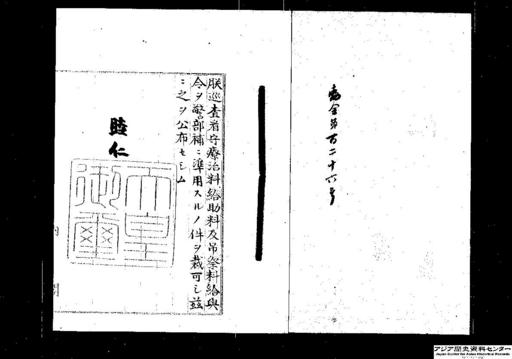 勅令第百二十六号
朕巡査看守療治料給助料及吊祭料給與
令ヲ警部補ニ準用スルノ件ヲ裁可シ茲
ニ之ヲ公布セシム
睦仁
天皇
御璽
アジア歴史資料センター
Japan Center for Asian Historical Records